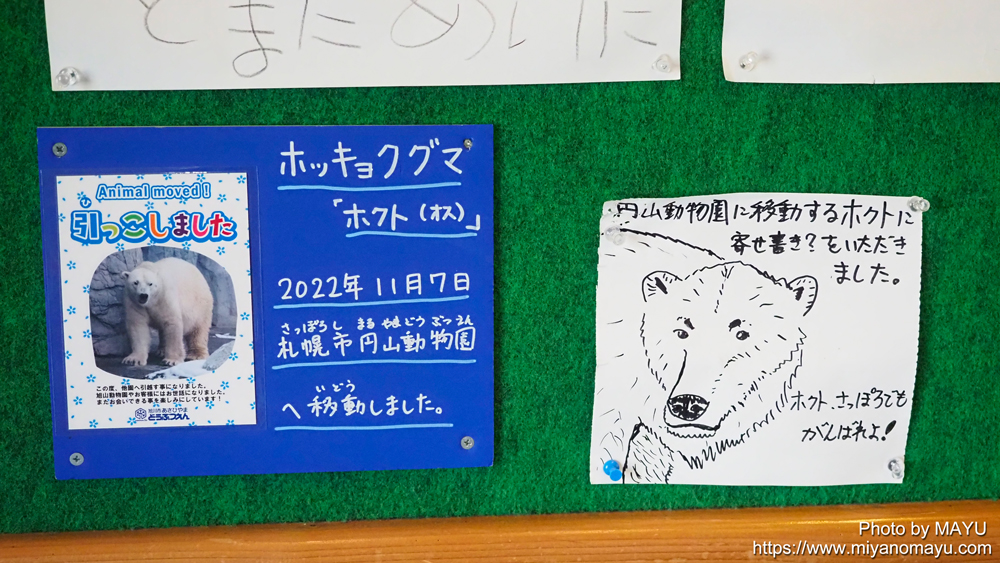 とまため
Animal moved!
ひ
引っこしました
この度、他園へ引越す事になりました。
旭山動物園やお客様にはお世話になりました。
またお会いできる事を楽しみにしています!
旭川市あさひやま
どうぶつえん
ホッキョクグマ
「ホクト(オス)」
2022年11月7日
さっぽろし まるやまどうぶつえん
札幌市円山動物園
いどう
へ移動しました。
円山動物園に移動するホクトに
寄せ書き?をいただき
ました。
ホクト、さっぽろでも
がんばれよ!
Photo by MAYU
https://www.miyanomayu.com